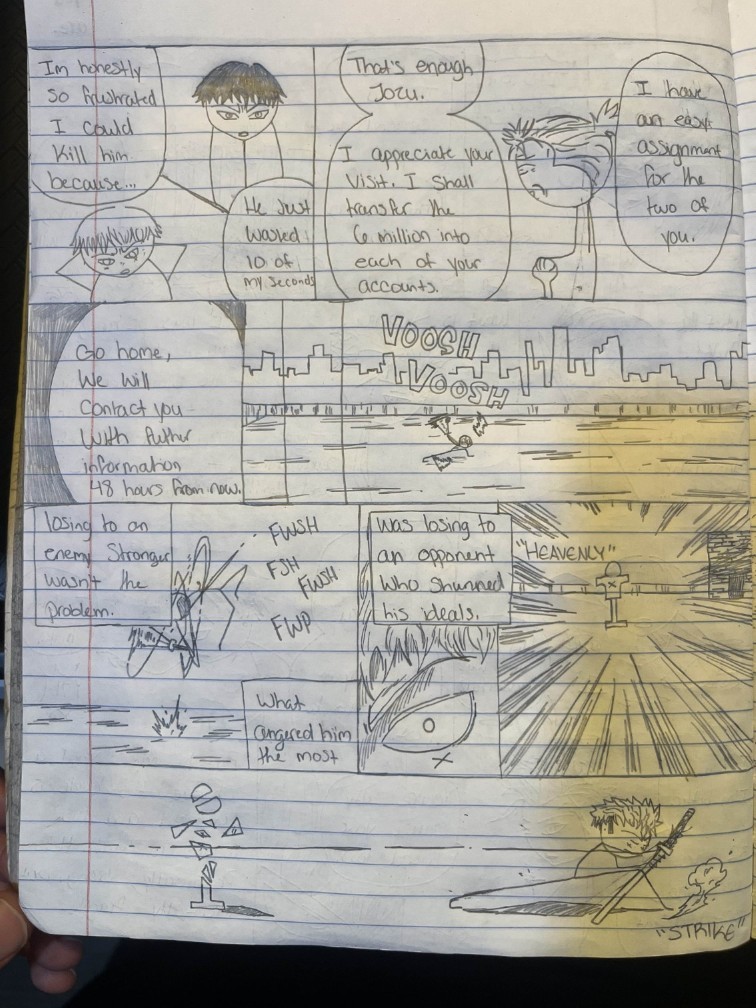 Im honestly
So frustrated
I could
Kill him
because...
He Just
Wasted
10 of
my seconds
That's enough
Jozu.
I appreciate your
Visit. I Shall
transfer the
6 million into
each of your
accounts.
I have
an easy
assignment
for the
two of
you.
Go home,
We will
Contact you
With futher
information
48 hours from now.
VOOSH
VOOSH
losing to an
enemy Stronger
wasn't the
problem.
FWSH
FSH
FWSH
FWP
What
angered him
the most
Was losing to
an opponent
Who Shunned
his ideals.
"HEAVENLY"
"STRIKE"